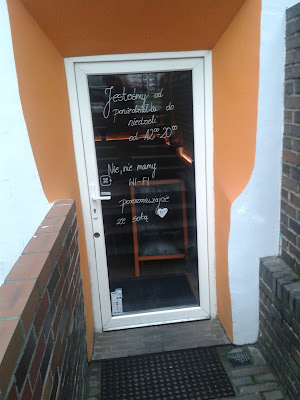 Jesteśmy od
poniedziałku do
niedzieli
od 12⁰⁰-20⁰⁰
Nie, nie mamy
WI-FI
porozmawiajcie
ze sobą